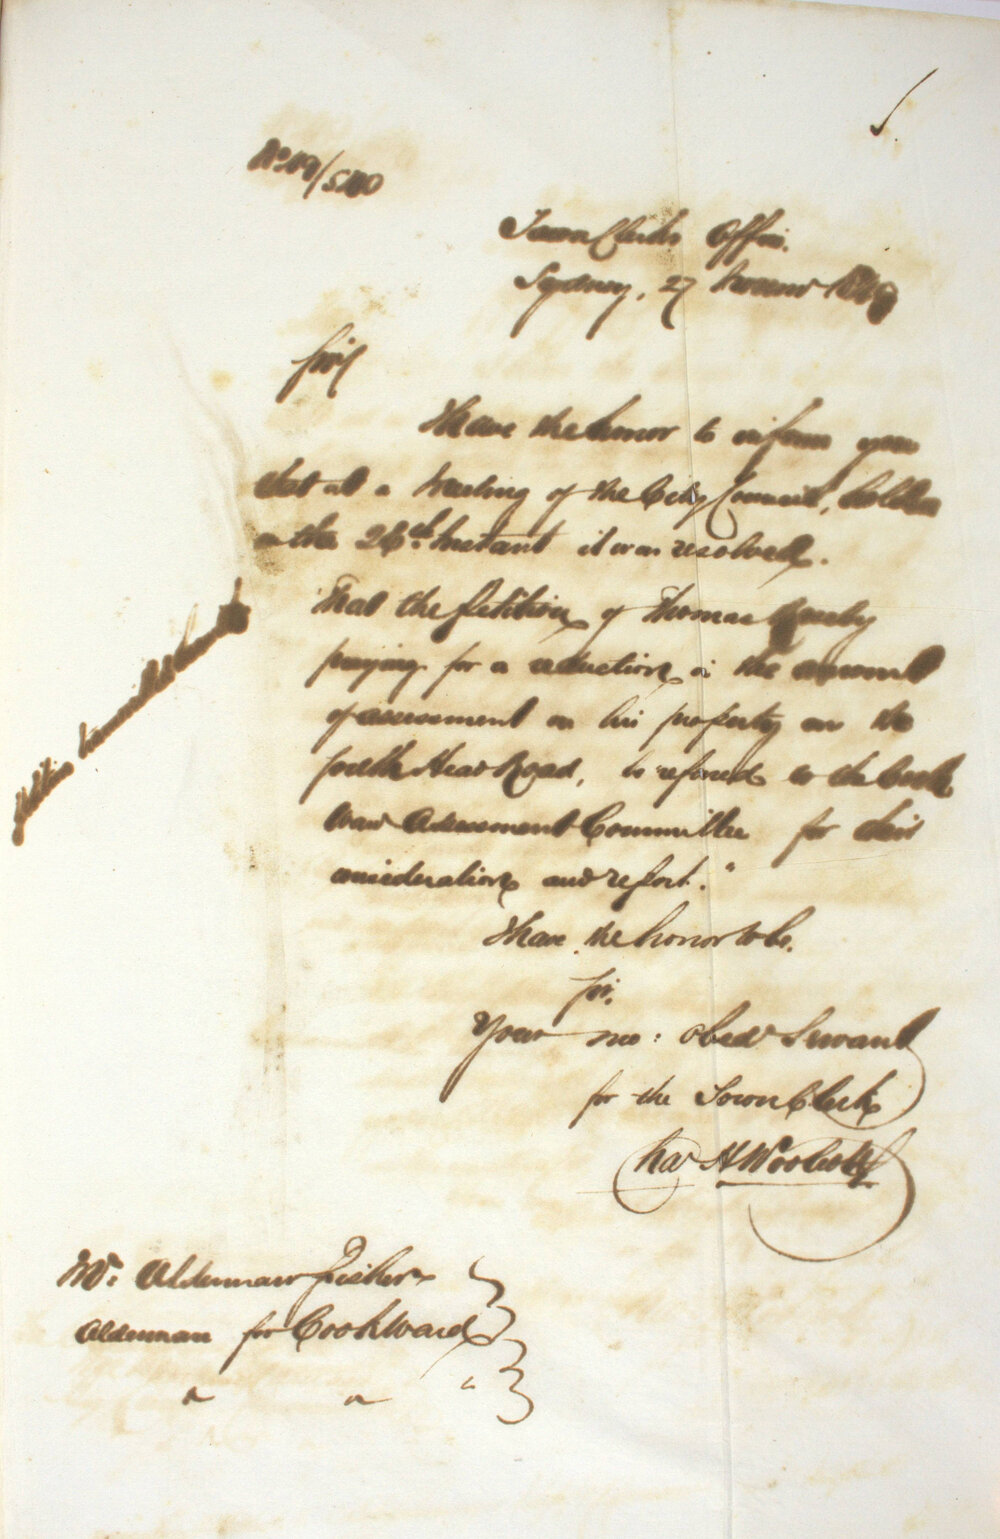 No 49/540
Town Clerks Office.
Sydney, 27 1849
Sir,
I have the honor to inform you
that at a Meeting of the City Council, holden
on the 26th Instant it was resolved.
That the Petition of Thomas
praying for a reduction in the amount
of assessment on his property on the
South Head Road, be referred to the Cook
Ward Assessment Committee for their
consideration and report."
I have the honor to be.
Sir,
Your mo: obedt Servant
for the Town Clerk
Chas H Woolcott
Petition transmitted herewith
Mr. Alderman Fisher
Alderman for Cook Ward
" " "